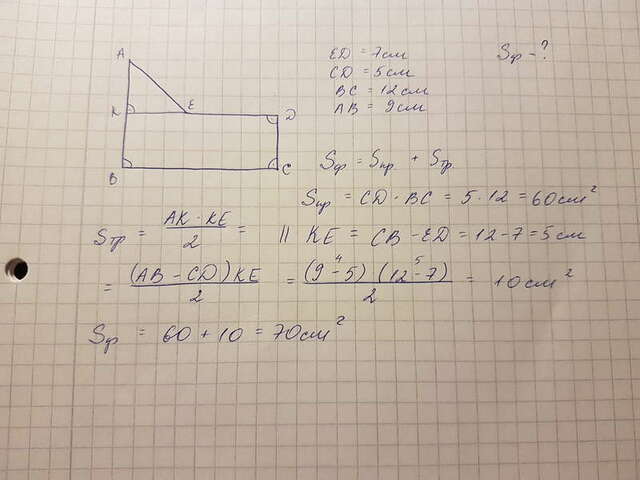 ED = 7см
CD = 5см
BC = 12см
AB = 9см
Sф = ?
A
K
E
D
B
C
Sф = Sпр + Sтр
Sпр = CD · BC = 5 · 12 = 60см²
Sтр = AK · KE / 2 = || KE = CB - ED = 12 - 7 = 5 см
= (AB - CD) KE / 2 = (9 - 5) 4 (12 - 7) 5 / 2 = 10см²
Sф = 60 + 10 = 70см²